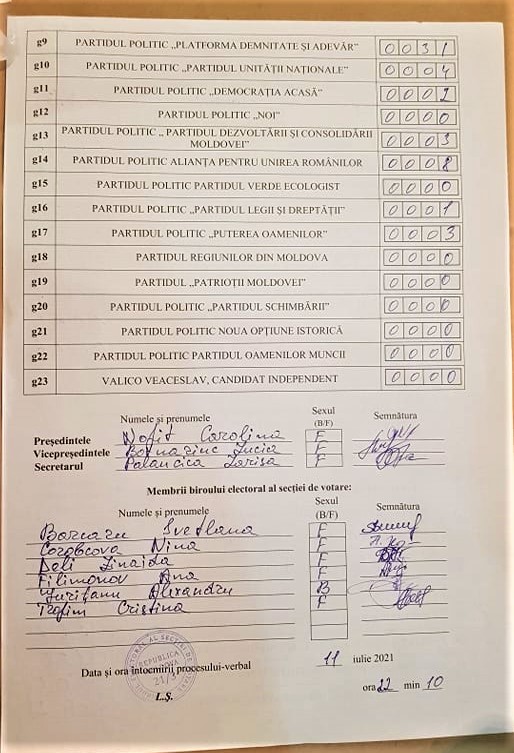 g9 PARTIDUL POLITIC „PLATFORMA DEMNITATE ȘI ADEVĂR” 0031
g10 PARTIDUL POLITIC „PARTIDUL UNITĂȚII NAȚIONALE” 0004
g11 PARTIDUL POLITIC „DEMOCRAȚIA ACASĂ” 0002
g12 PARTIDUL POLITIC „NOI” 0000
g13 PARTIDUL POLITIC „ PARTIDUL DEZVOLTĂRII ȘI CONSOLIDĂRII
MOLDOVEI” 0003
g14 PARTIDUL POLITIC ALIANȚA PENTRU UNIREA ROMÂNILOR 0008
g15 PARTIDUL POLITIC PARTIDUL VERDE ECOLOGIST 0000
g16 PARTIDUL POLITIC „PARTIDUL LEGII ȘI DREPTĂȚII” 0001
g17 PARTIDUL POLITIC „PUTEREA OAMENILOR” 0003
g18 PARTIDUL REGIUNILOR DIN MOLDOVA 0000
g19 PARTIDUL „PATRIOȚII MOLDOVEI” 0000
g20 PARTIDUL POLITIC „PARTIDUL SCHIMBĂRII” 0000
g21 PARTIDUL POLITIC NOUA OPȚIUNE ISTORICĂ 0000
g22 PARTIDUL POLITIC PARTIDUL OAMENILOR MUNCII 0000
g23 VALICO VEACESLAV, CANDIDAT INDEPENDENT 0000
Numele și prenumele Sexul (B/F) Semnătura
Președintele Nofit Carolina F
Vicepreședintele Lucia F
Secretarul Palancica Larisa F
Membrii biroului electoral al secției de votare:
Numele și prenumele Sexul (B/F) Semnătura
Svetlana F
Corobcova Nina F
Deli Zinaida F
Filimonov Ana F
Alexandru B
Trofim Cristina F
REPUBLICA
Data și ora întocmirii procesului-verbal 11 iulie 2021
L.Ș. ora 22 min 10